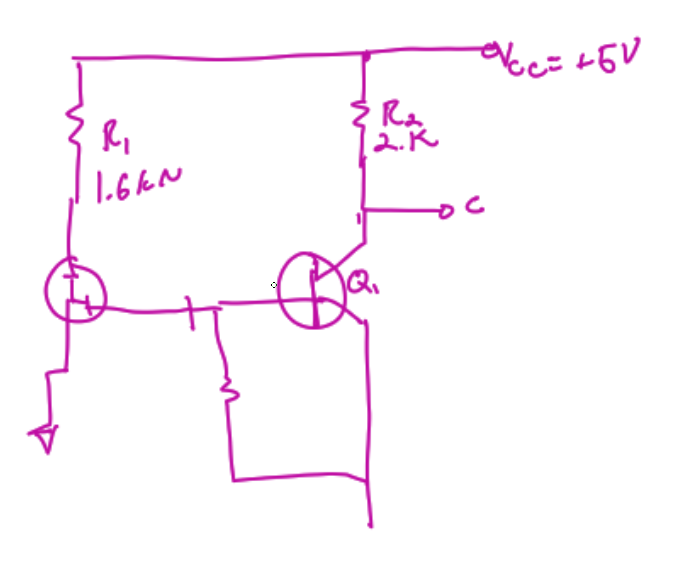 VCC = +5V
R1
1.6kΩ
R2
2.K
C
Q1